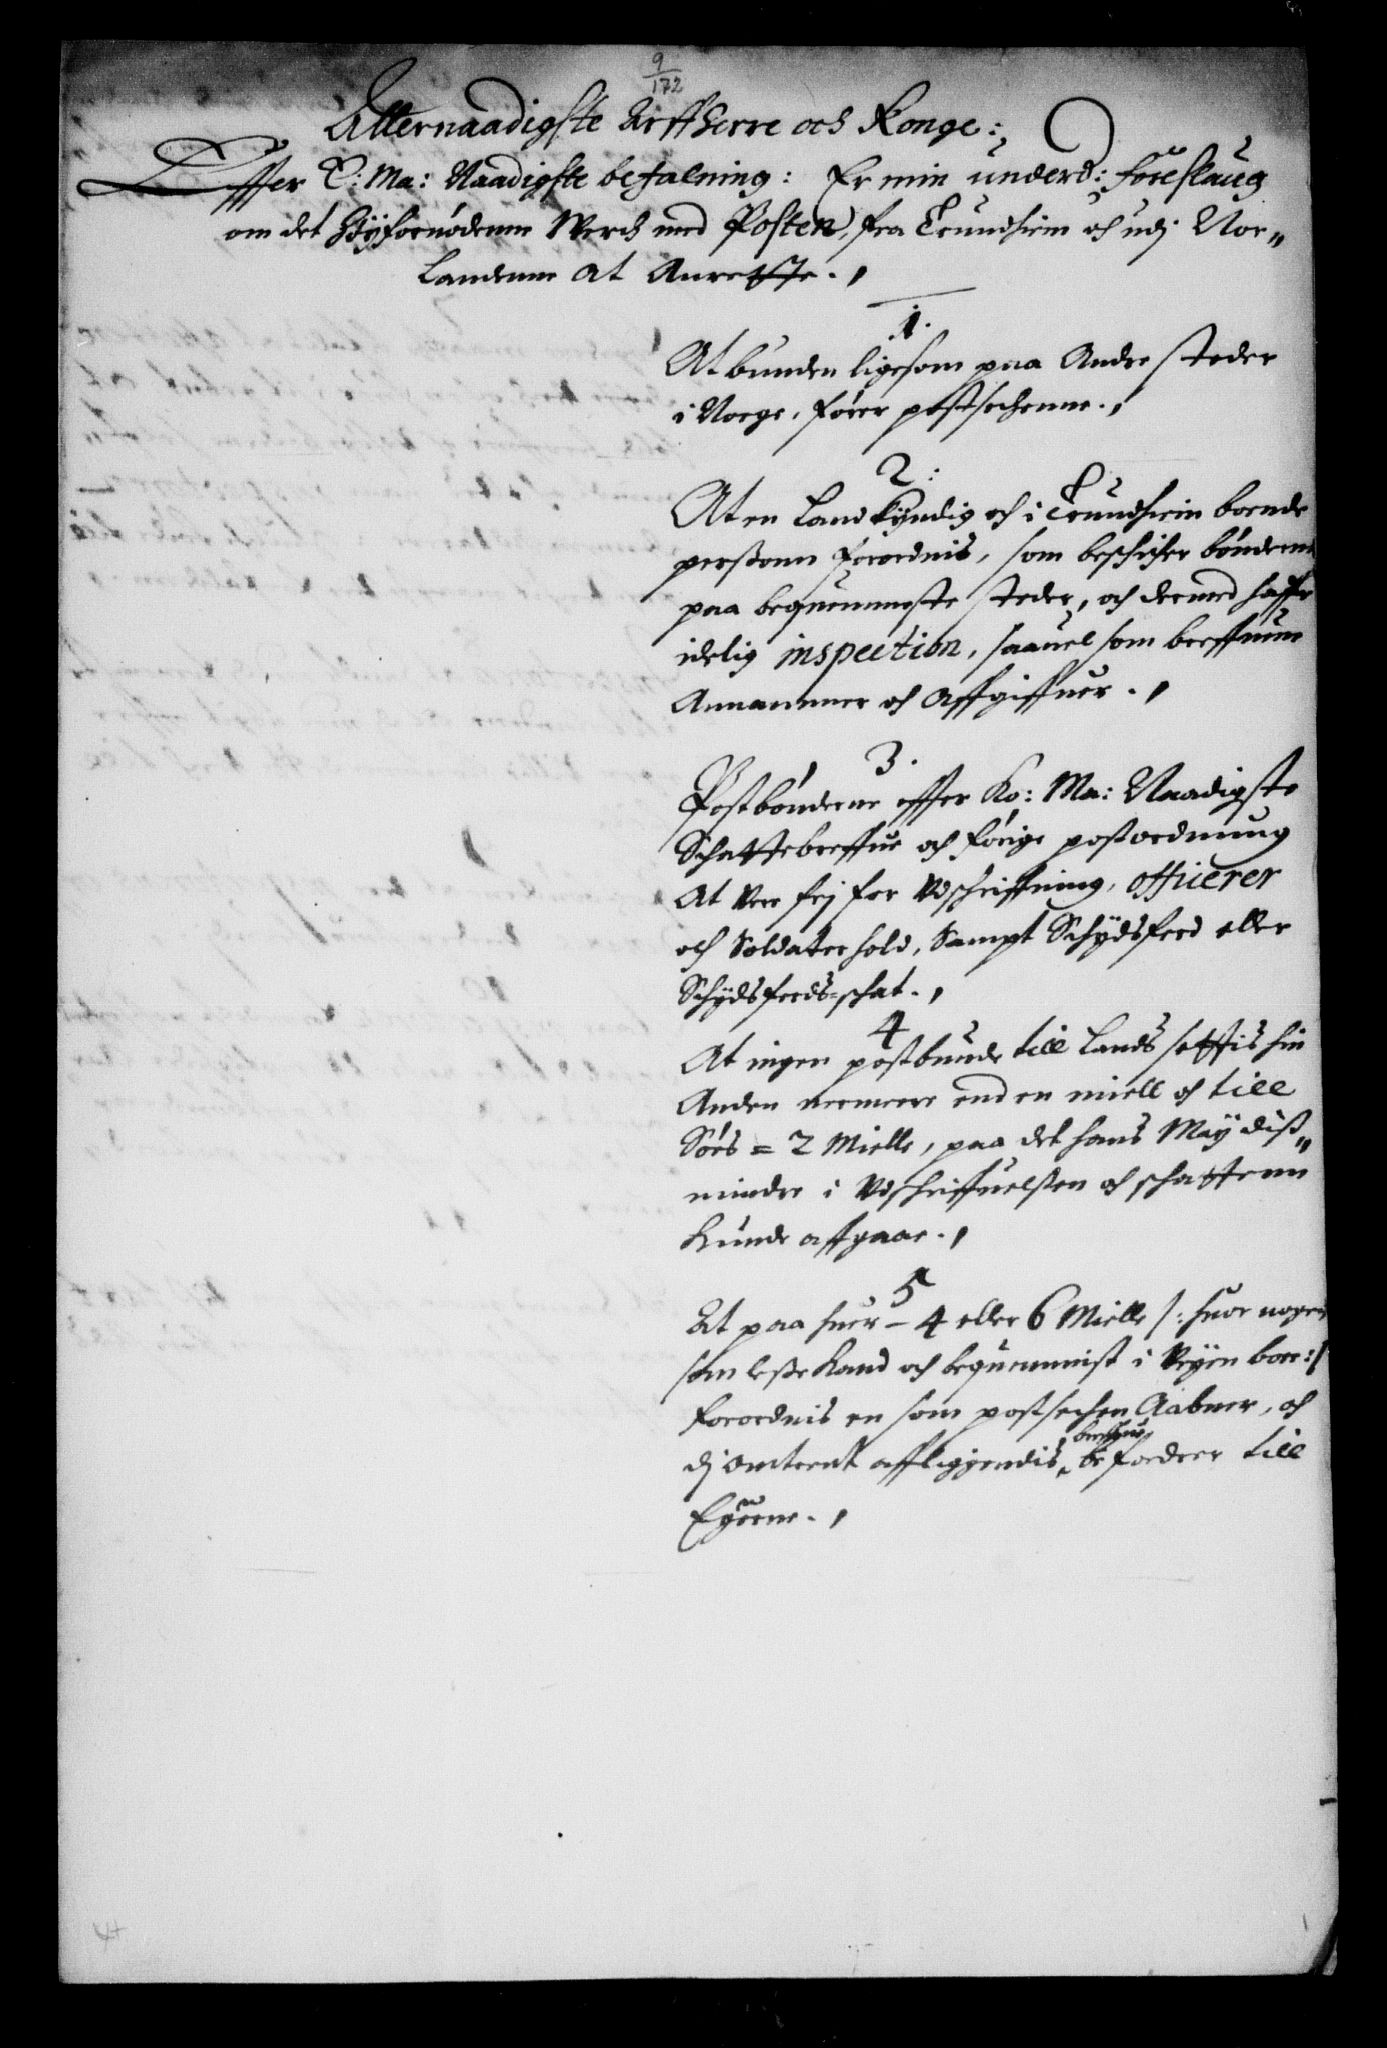 9
172
Allernaadigste Arffherre och Konge:
Effter E: Ma: Naadigste befalning: Er min underd: foreslaug
om det Høyfornødenne Werch med Posten, fra Trundhiem och udj Nor„
Landenne at Anrette.
1.
At bunden ligesom paa Andre steder
i Norge, fører postsechenne.
2:
At en Landkyndig och i Trundhiem boende
persohn forordnis, som beschicher bønderne
paa beqvemmeste steder, och dermed haffr
idelig inspection, saauel som breffuene
Annammer och Affgiffuer.
3.
Postbønderne effter Ko: Ma: Naadigste
Schattebreffue och forige postordnung
At vere frj for Vdschriffning, officerer
och Soldaterhold, Sampt Schydsferd eller
Schydsferds=schat.
4
At ingen postbunde till Lands settis hin
Anden nermere end en miell och till
Søes = 2 Mielle, paa det hans May diß„
mindre i Vdschriffuelsen och schattenn
Kunde affgaae.
5
At paa huer - 4 eller 6 Mielle /: huor nogen
som leße Kand och beqvemmist i Veyen boer:/
forordnis en som postsechen Aabner, och
dj omtrent affliggendis breffue befordrer till
Eyerne.